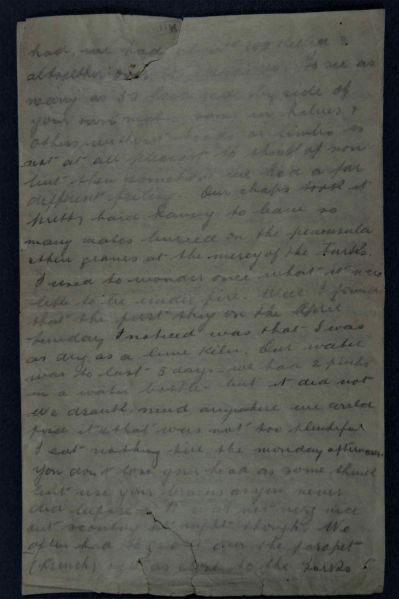 had, we had about 100 killed &
altogether over
many as 33 side by side of
your own mates some in halves &
others without heads or limbs is
not at all pleasant to think of now
but then somehow we had a far
different feeling. Our chaps took it
pretty hard having to leave so
many mates burried on the peninsula
their graves at the mercy of the Turks.
I used to wonder once what it was
like to be under fire. Well I found
that the first thing on the April
Sunday I noticed was that I was
as dry as a lime kiln. Our water
was to last 3 days we had 2 pints
in a water bottle but it did not
We drank mud anywhere we could
find it & that was not too plentiful
I eat nothing till the monday afternoon.
You don't lose your head as some think
but use your brains as you never
did before. It was not very nice
out scouting at night though. We
often had to go out over the parapet
(trench) as close to the Turks